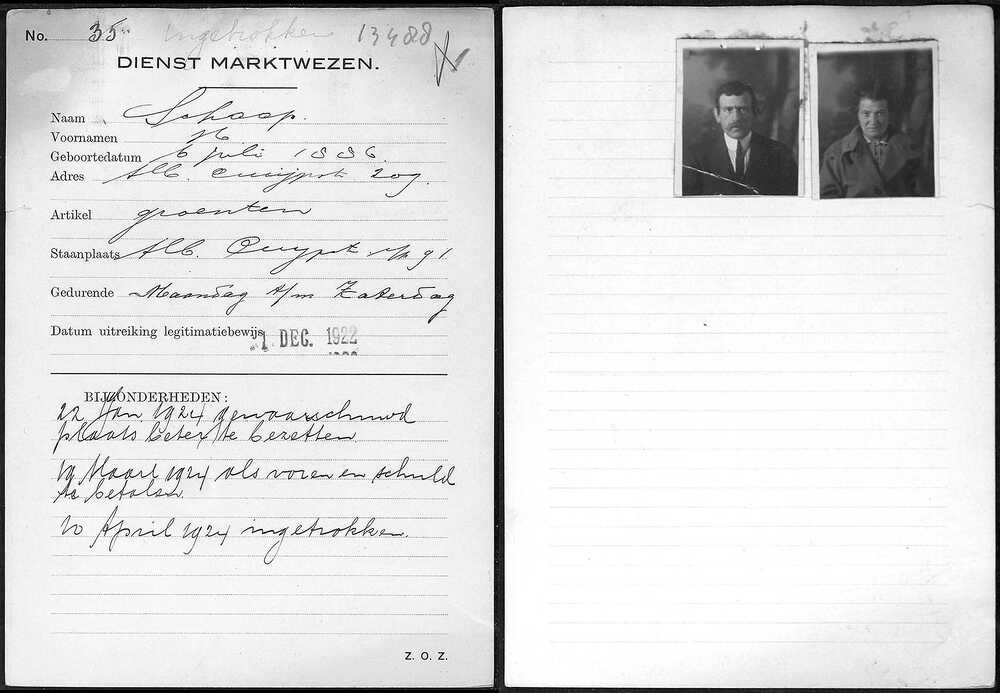 No. 35 Ingetrokken 13488
DIENST MARKTWEZEN.
Naam Schaap.
Voornamen H
Geboortedatum 6 juli 1886.
Adres Alb. Cuijpstr 209.
Artikel groenten
Staanplaats Alb. Cuypst n/p 91.
Gedurende Maandag t/m Zaterdag
Datum uitreiking legitimatiebewijs 1 DEC. 1922
BIJZONDERHEDEN:
22 Jan. 1924 gewaarschuwd
plaats beter te bezetten.
19 Maart 1924 als voren en schuld
te betalen.
10 April 1924 ingetrokken.
Z. O. Z.